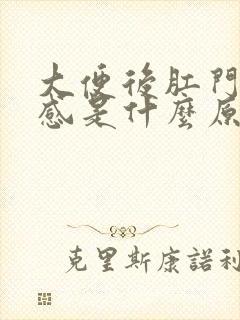 大便後肛門
感是什麼原
克里斯康諾利